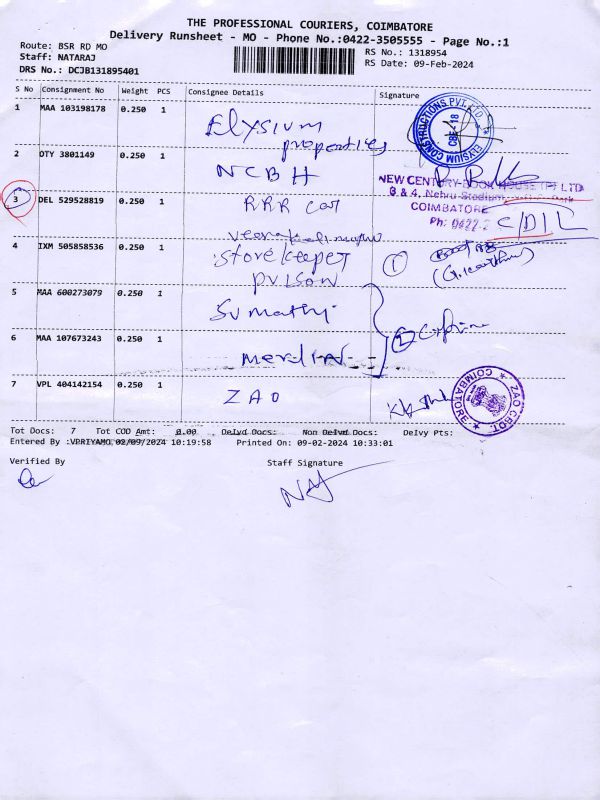 THE PROFESSIONAL COURIERS, COIMBATORE
Delivery Runsheet - MO - Phone No.:0422-3505555 - Page No.:1
Route: BSR RD MO
Staff: NATARAJ
DRS No.: DCJB131895401
RS No.: 1318954
RS Date: 09-Feb-2024
S No Consignment No Weight PCS Consignee Details Signature
1 MAA 103198178 0.250 1 Elysium properties
ELYSIUM CONSTRUCTIONS PVT. LTD. CBE-18
2 DTY 3801149 0.250 1 NCBH
NEW CENTURY BOOK HOUSE (P) LTD
3 & 4, Nehru Stadium
COIMBATORE
Ph: 0422-2
3 DEL 529528819 0.250 1 RRR car
C/D/L
4 IXM 505858536 0.250 1 store keeper
1
5 MAA 600273079 0.250 1 Sumathi
6 MAA 107673243 0.250 1
2
7 VPL 404142154 0.250 1 ZAO
COIMBATORE
Tot Docs: 7 Tot COD Amt: 0.00 Delvd Docs: Non Delvd Docs: Delvy Pts:
Entered By :VPRIYAMO 02/09/2024 10:19:58 Printed On: 09-02-2024 10:33:01
Verified By Staff Signature